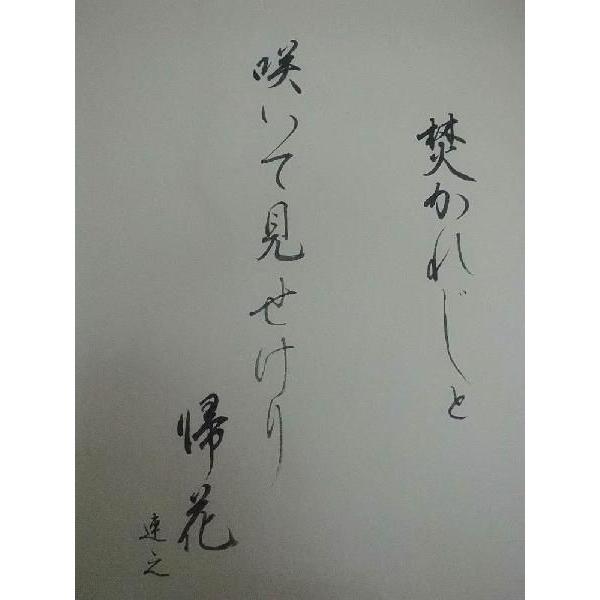 焚かれじと
咲いて見せけり
帰花
連之